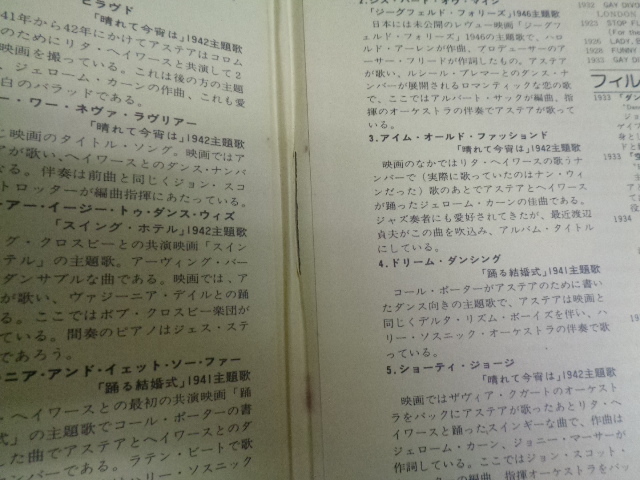 ビラヴド
「晴れて今宵は」1942主題歌
41年から42年にかけてアステアはコロム
のためにリタ・ヘイワースと共演して2
映画を撮っている。これは後の方の主題
ジェローム・カーンの作曲、これも愛
白のバラッドである。
ー・ワー・ネヴァ・ラヴリアー
「晴れて今宵は」1942主題歌
映画のタイトル・ソング。映画ではア
アが歌い、ヘイワースとのダンス・ナン
ある。伴奏は前曲と同じくジョン・スコ
トロッターが編曲指揮にあたっている。
・アー・イージー・トゥ・ダンス・ウィズ
「スイング・ホテル」1942主題歌
グ・クロスビーとの共演映画「スイン
テル」の主題歌。アーヴィング・バー
ダンサブルな曲である。映画では、ア
が歌い、ヴァジーニア・デイルとの踊
る。ここではボブ・クロスビー楽団が
ている。間奏のピアノはジェス・ステ
であろう。
ニア・アンド・イェット・ソー・ファー
「踊る結婚式」1941主題歌
・ヘイワースとの最初の共演映画「踊
式」の主題歌でコール・ポーターの書
した曲でアステアとヘイワースとのダ
ンバーである。ラテン・ビートで歌
ハリー・ソスニック
「ジーグフェルド・フォリーズ」1946主題歌
日本には未公開のレヴュー映画「ジーグフ
ェルド・フォリーズ」1946の主題歌で、ハロ
ルド・アーレンが作曲、プロデューサーのア
ーサー・フリードが作詞したもの。アステア
が歌い、ルシール・ブレマーとのダンス・ナ
ンバーが展開されるロマンティックな恋の歌
で、ここではアルバート・サックが編曲、指
揮のオーケストラの伴奏でアステアが歌って
いる。
3.アイム・オールド・ファッションド
「晴れて今宵は」1942主題歌
映画のなかではリタ・ヘイワースの歌うナ
ンバーで（実際に歌っていたのはナン・ウィ
ンだった）歌のあとでアステアとヘイワース
が踊ったジェローム・カーンの佳曲である。
ジャズ奏者にも愛好されてきたが、最近渡辺
貞夫がこの曲を吹込み、アルバム・タイトル
にしている。
4.ドリーム・ダンシング
「踊る結婚式」1941主題歌
コール・ポーターがアステアのために書い
たダンス向きの主題歌で、アステアは映画と
同じくデルタ・リズム・ボーイズを伴い、ハ
リー・ソスニック・オーケストラの伴奏で歌
っている。
5.ショーティ・ジョージ
「晴れて今宵は」1942主題歌
映画ではザヴィア・クガートのオーケスト
ラをバックにアステアが歌ったあとリタ・ヘ
イワースと踊ったスインギーな曲で、作曲は
ジェローム・カーン、ジョニー・マーサーが
作詞している。ここではジョン・スコット・
編曲、指揮オーケストラをバッ
LONDON
1923 STOP F
(For the
1926 LADY,
1928 FUNNY
1933 GAY DI
フィル
1933
1933
1934